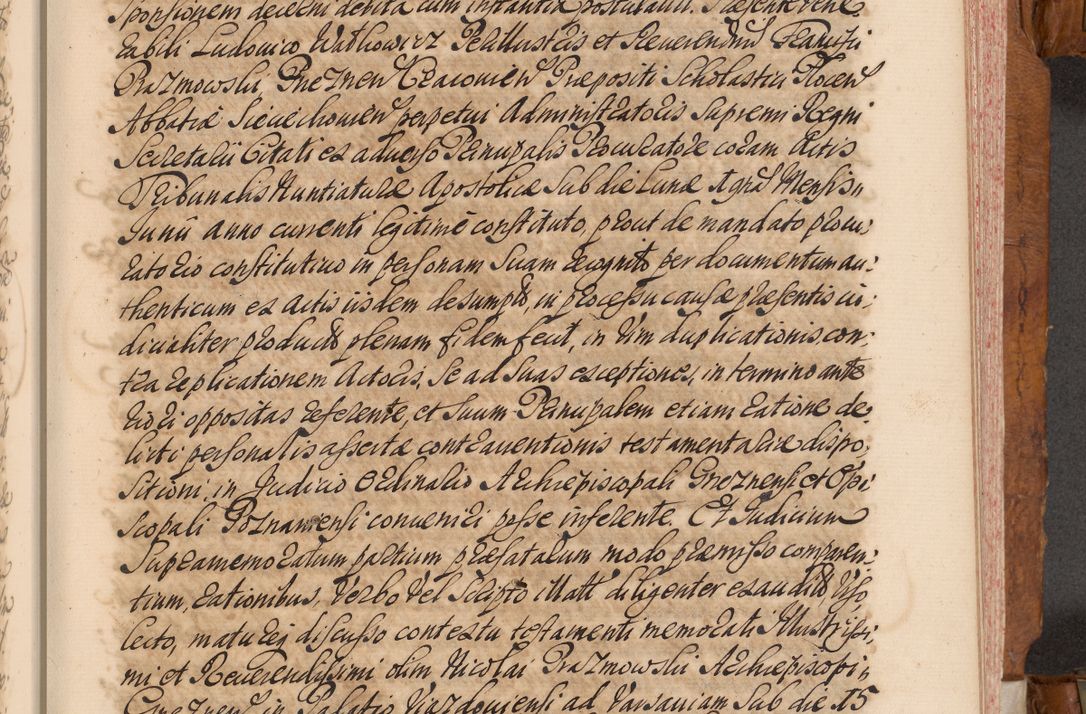 sponsionem decerni debita cum instantia postulavit. Praesente Vene
rabili Ludovico Wathowicz Perillustris et Reverendissimi Francisci
Prazmowski, Gneznen Cracovien Praepositi Scholastici Plocen
Abbatiae Sieciechovien perpetui Administratoris Supremi Regni
Secretarii Citati ex adverso Principalis Procuratore coram Actis
Tribunalis Nuntiaturae Apostolicae Sub die Lunae Mensis
Junii anno currenti legitime constituto, prout de mandato procu:
ratorio constitutivo in personam Suam recognito per documentum au:
thenticum ex actis iisdem desumpto, in processu causae praesentis iu:
dicialiter producto plenam fidem fecit, in vim duplicationis con:
tra replicationem Actoris, Se ad Suas exceptiones, in termino ante
riori oppositas referente, et Suum Principalem etiam ratione de
licti personalis assertae contraventionis testamentariae dispo,
sitioni, in Judicio Ordinario Archiepiscopali Gneznensi et Epi
scopali Poznaniensi conveniri posse inferente. Et Judicium
Supramemoratum partium praefatarum modo praemisso comparen:
tium, rationibus, Verbo Vel Scripto illatis diligenter exauditis, Viso
lecto, matureq discusso contextu testamenti memorati Illustrissi,
mi et Reverendissimi olim Nicolai Prazmowski Archiepiscopi
Gneznen in Palatio Viazdoviensi ad Varsaviam Sub die 15